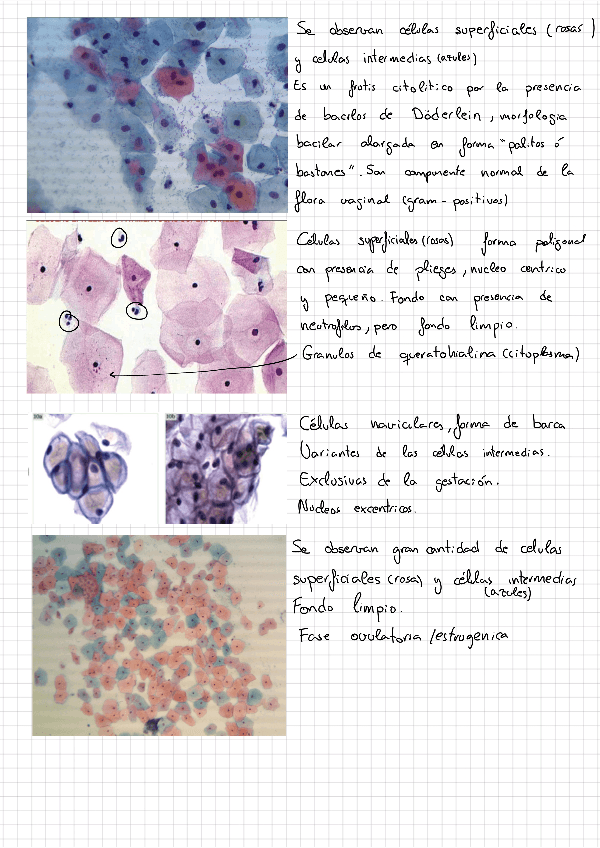 Se observan células superficiales (rosas)
y celulas intermedias (azules)
Es un frotis citolitico por la presencia
de bacilos de Döderlein, morfologia
bacilar alargada en forma "palitos ó
bastones". Son componente normal de la
flora vaginal (gram-positivos)
Células superficiales (rosas) forma poligonal
con presencia de plieges, nucleo centrico
y pequeño. Fondo con presencia de
neutrofilos, pero fondo limpio.
Granulos de queratohialina (citoplasma)
10a
10b
Células naviculares, forma de barca
Variantes de las celulas intermedias.
Exclusivas de la gestación.
Nucleos excentricos.
Se observan gran cantidad de celulas
superficiales (rosa) y célilas intermedias
(azules)
Fondo limpio.
Fase ovulatoria /estrogenica